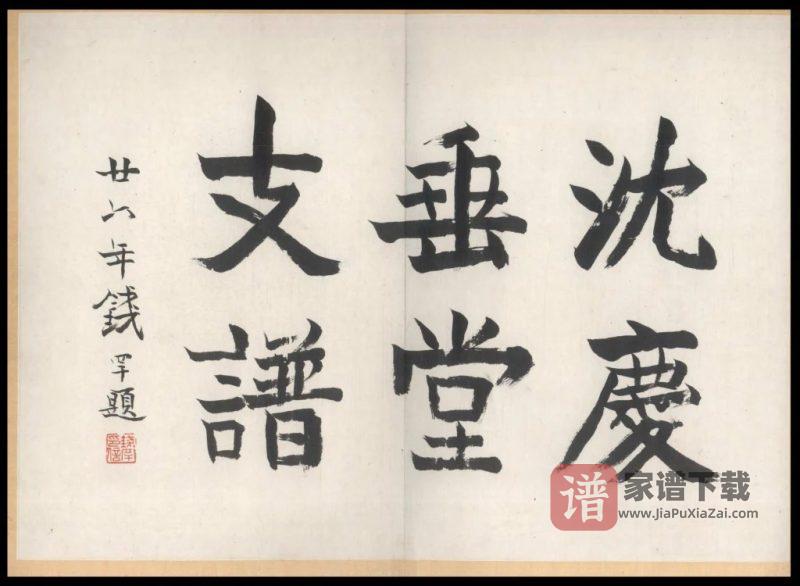 沈慶
垂堂
支譜
廿六年錢罕題
谱 家谱下载
www.JiaPuXiaZai.com